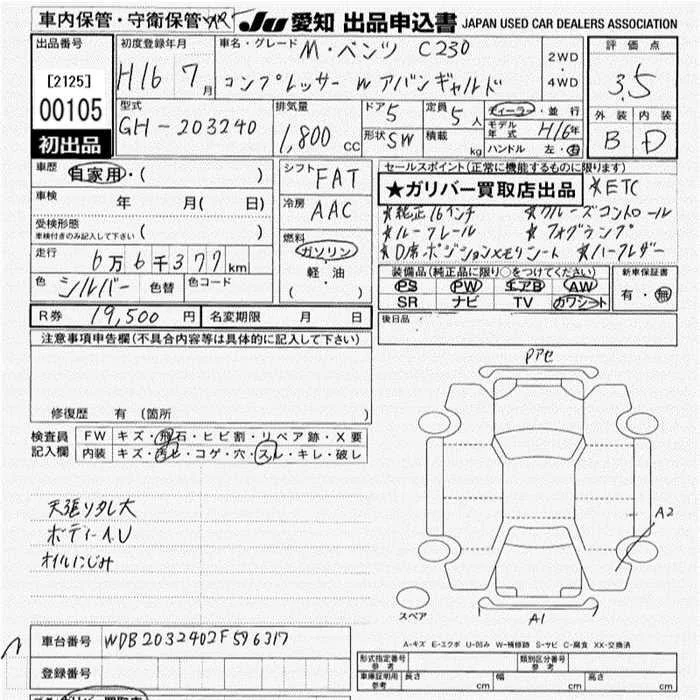 車内保管・守衛保管 JU 愛知 出品申込書 JAPAN USED CAR DEALERS ASSOCIATION
出品番号 初度登録年月 車名・グレード M・ベンツ C230 2WD 評価点
[2125] H16 7月 コンプレッサー W アバンギャルド 4WD 3.5
00105 型式 排気量 ドア 5 定員 5人 ディーラー・並行 外装 内装
初出品 GH-203240 1,800 cc 形状 SW 積載 kg モデル年式 H16年 B D
ハンドル 左・右
車歴 自家用・( ) シフト FAT セールスポイント(正常に機能するものに限ります)
車検 年 月( 日) 冷房 AAC ★ガリバー買取店出品 ※ETC
受検形態 ※純正16インチ ※クルーズコントロール
車検付きのみ記入して下さい ( ) 燃料 ※ルーフレール ※フォグランプ
走行 6万6千377km ガソリン ※D席ポジションメモリシート ※ハーフレザー
色 シルバー 色替 色コード 軽・油 装備品(純正品に限り○をつけてください) 新車保証書
( ・ ) PS PW エアB AW 有・無
SR ナビ TV カワシート
R券 19,500 円 名変期限 月 日 後日品
注意事項申告欄(不具合内容等は具体的に記入して下さい)
Pアセ
修復歴 有 (箇所 )
検査員 FW キズ・飛石・ヒビ割・リペア跡・X要
記入欄 内装 キズ・汚れ・コゲ・穴・スレ・キレ・破レ
天張りタレ大
A2
ボディーA.U
オイルにじみ
スペア A1
車台番号 WDB2032402F596317
A-キズ E-エクボ U-凹み W-補修跡 S-サビ C-腐食 XX-交換済
登録番号 形式指定番号 参考 類別区分番号 参考
車庫証明用 参考 長さ cm 幅 cm 高さ cm